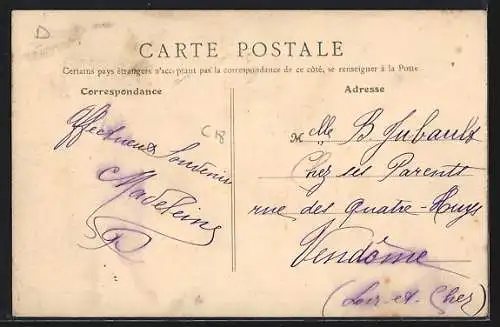 D
CARTE POSTALE
Certains pays étrangers n'acceptant pas la correspondance de ce côté, se renseigner à la Poste
Correspondance
Affectueux Souvenir
Madeleine
C18
Adresse
Mlle B. Jubault
Chez ses Parents
rue des Quatre-Huys
Vendôme
(Loir-et-Cher)